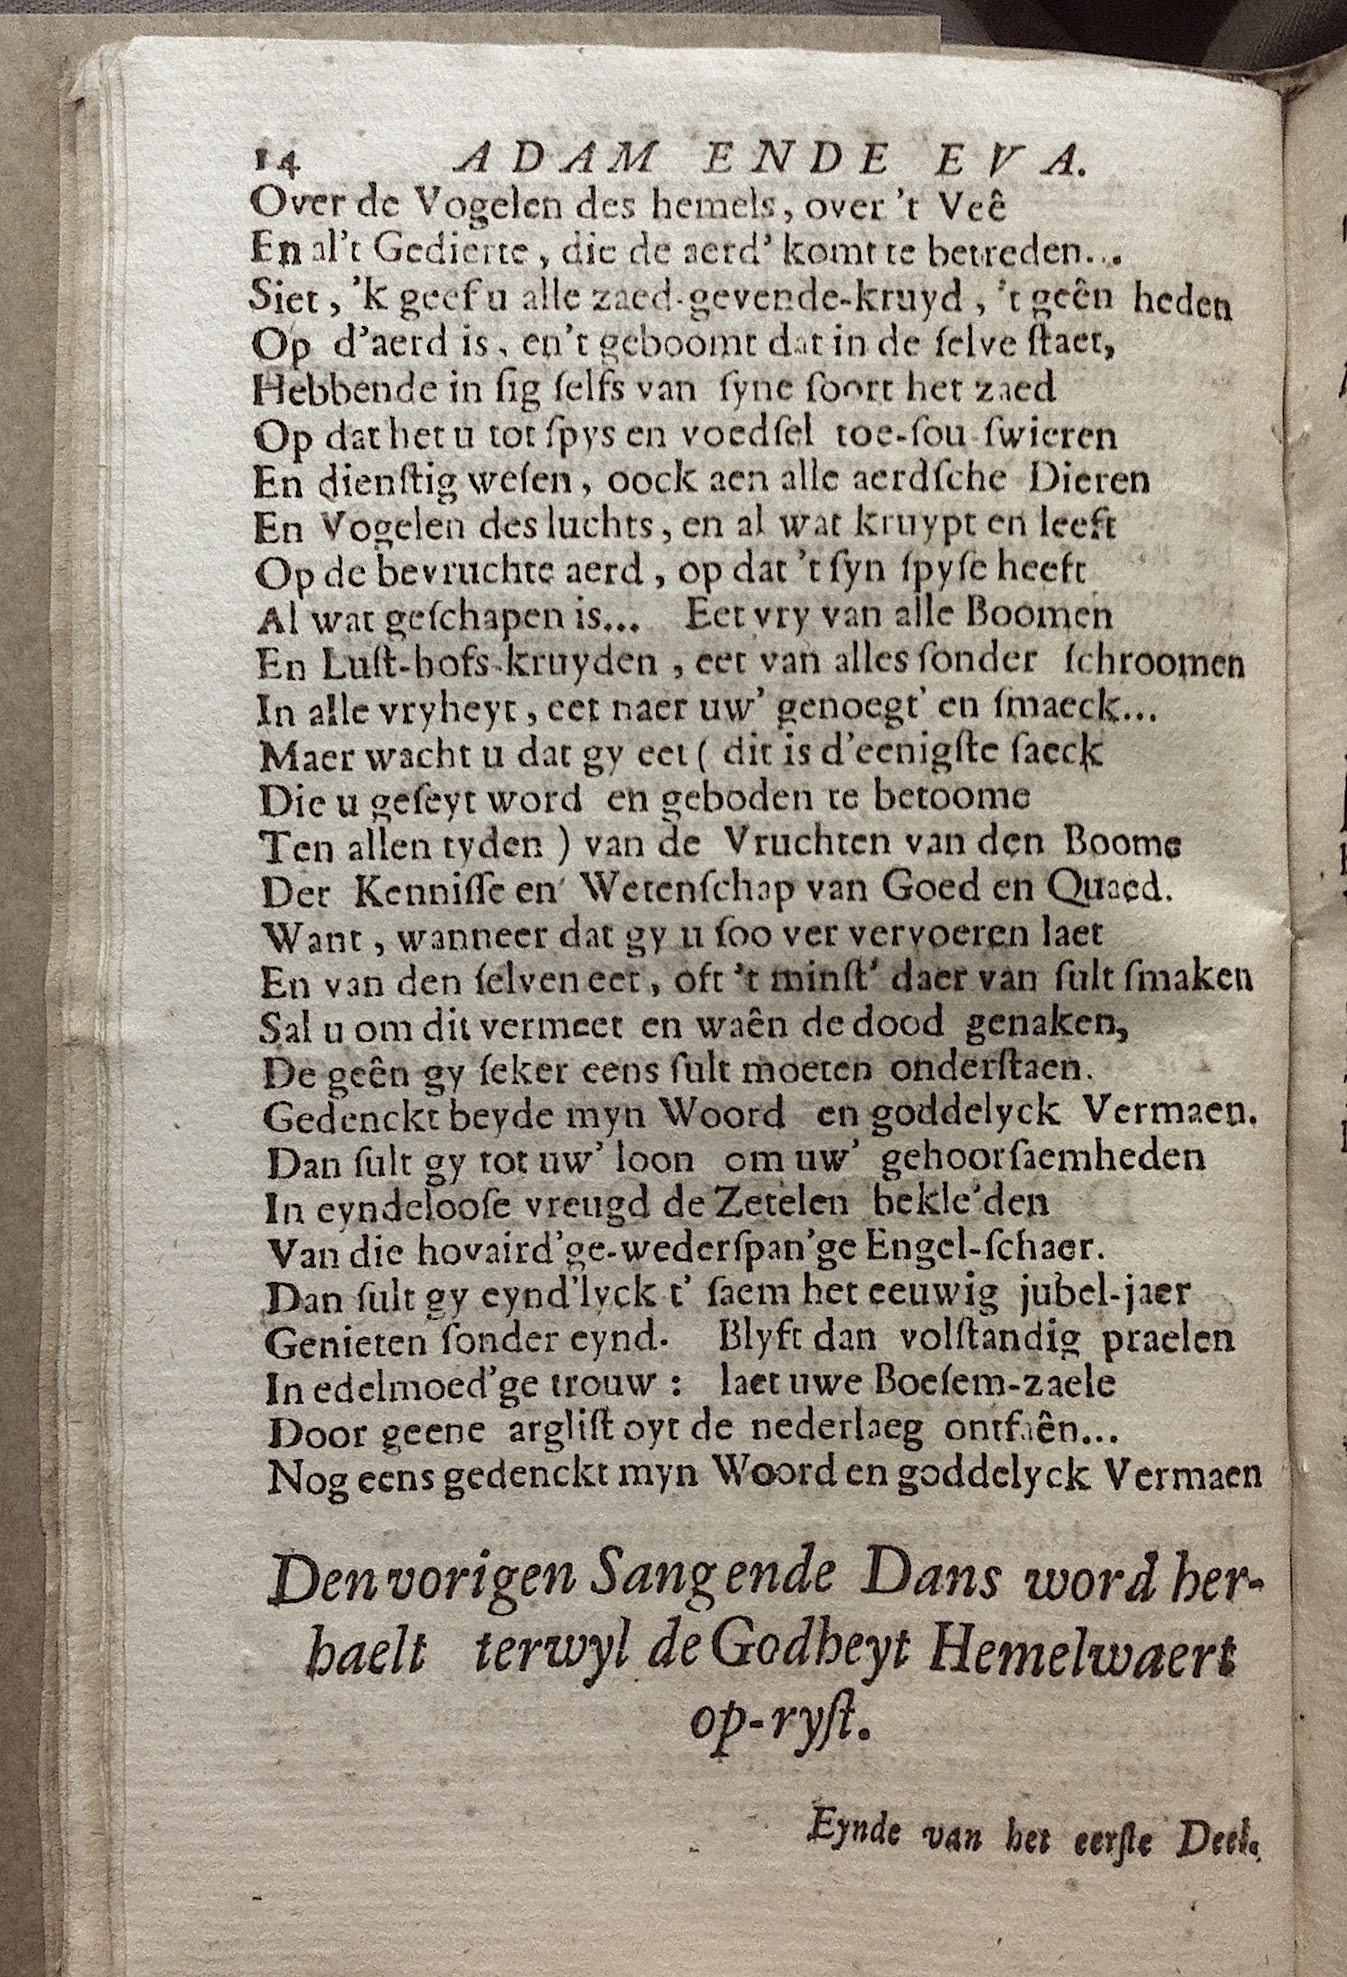 14 ADAM ENDE EVA.
Over de Vogelen des hemels, over 't Veê
En al't Gedierte, die de aerd' komt te betreden...
Siet, 'k geef u alle zaed-gevende-kruyd, 't geên heden
Op d'aerd is, en't geboomt dat in de ſelve ſtaet,
Hebbende in ſig ſelfs van ſyne ſoort het zaed
Op dat het u tot ſpys en voedſel toe-ſou-ſwieren
En dienſtig weſen, oock aen alle aerdſche Dieren
En Vogelen des luchts, en al wat kruypt en leeft
Op de bevruchte aerd, op dat 't ſyn ſpyſe heeft
Al wat geſchapen is... Eet vry van alle Boomen
En Luſt-hofs-kruyden, eet van alles ſonder ſchroomen
In alle vryheyt, eet naer uw' genoegt' en ſmaeck...
Maer wacht u dat gy eet ( dit is d'eenigſte ſaeck
Die u geſeyt word en geboden te betoome
Ten allen tyden ) van de Vruchten van den Boome
Der Kenniſſe en' Wetenſchap van Goed en Quaed.
Want, wanneer dat gy u ſoo ver vervoeren laet
En van den ſelven eet, oft 't minſt' daer van ſult ſmaken
Sal u om dit vermeet en waên de dood genaken,
De geên gy ſeker eens ſult moeten onderſtaen.
Gedenckt beyde myn Woord en goddelyck Vermaen.
Dan ſult gy tot uw' loon om uw' gehoorſaemheden
In eyndelooſe vreugd de Zetelen bekle'den
Van die hovaird'ge-wederſpan'ge Engel-ſchaer.
Dan ſult gy eynd'lyck t' ſaem het eeuwig jubel-jaer
Genieten ſonder eynd. Blyft dan volſtandig praelen
In edelmoed'ge trouw : laet uwe Boeſem-zaele
Door geene argliſt oyt de nederlaeg ontfaên...
Nog eens gedenckt myn Woord en goddelyck Vermaen
Den vorigen Sang ende Dans word her-
haelt terwyl de Godheyt Hemelwaert
op-ryſt.
Eynde van het eerſte Deel.